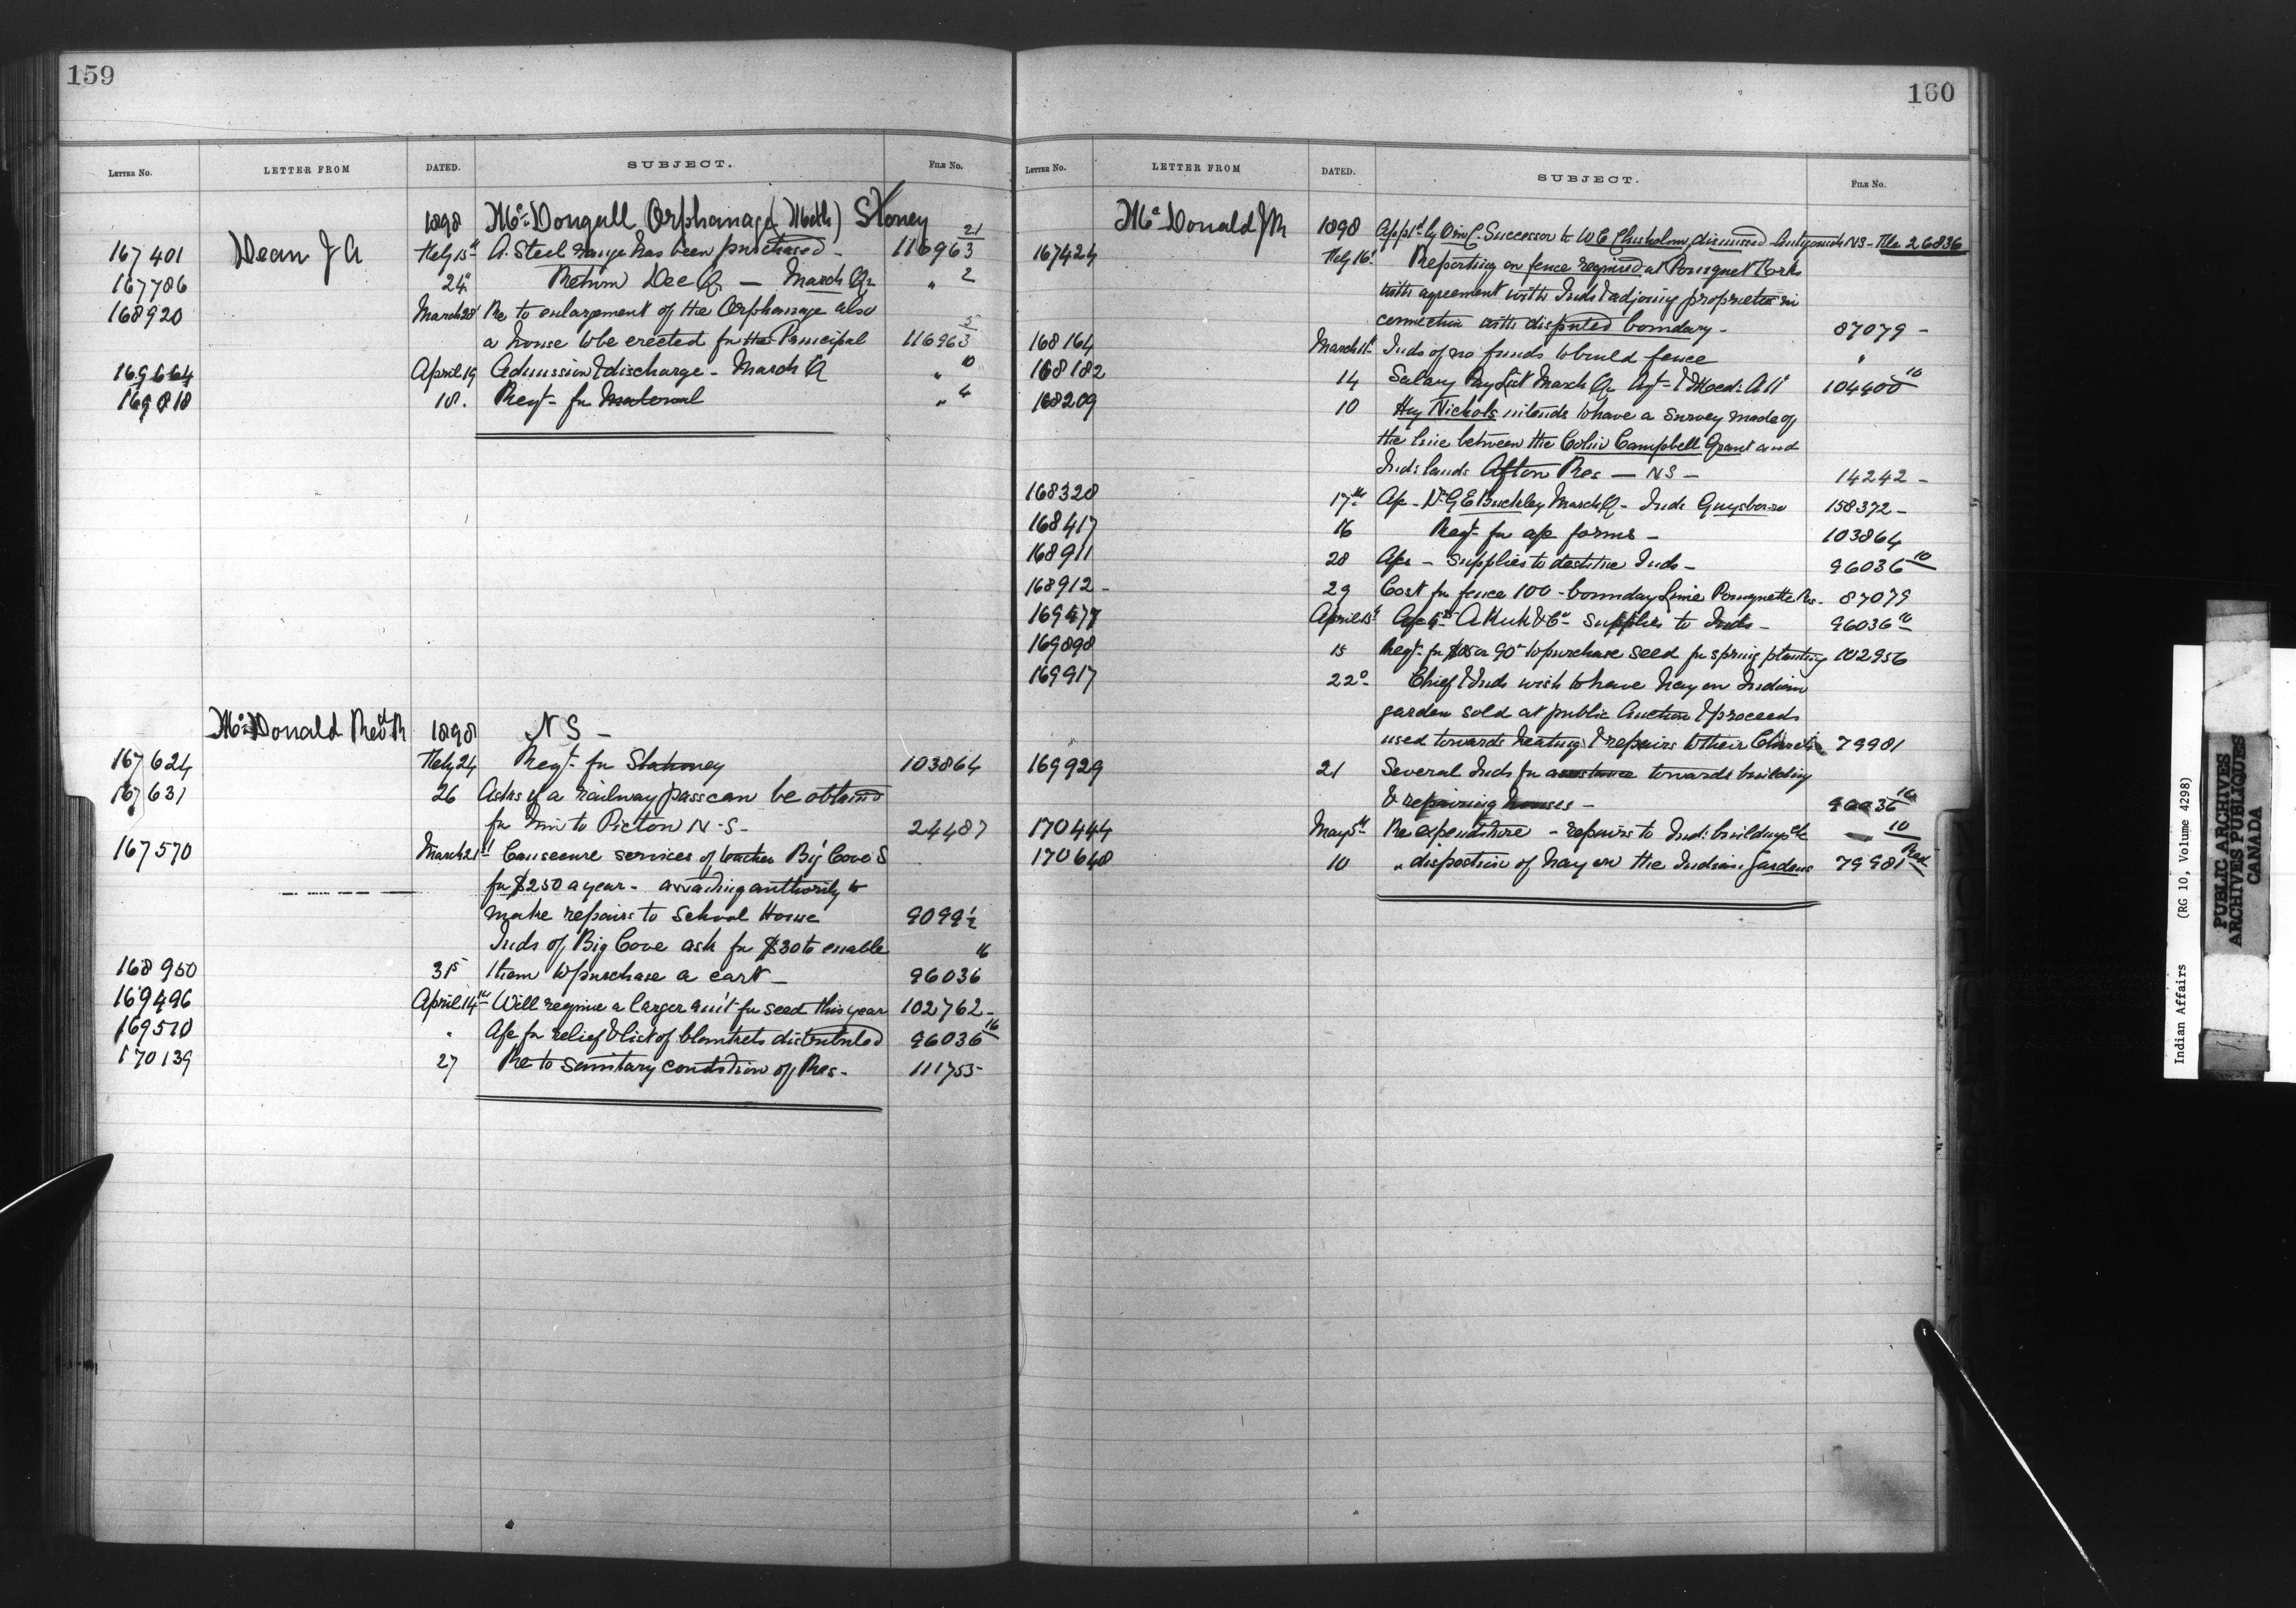 159
LETTER NO. LETTER FROM DATED. SUBJECT. FILE NO.
1898 McDougall Orphanage (Meth) Stoney
167401 Dean J A Feby 15th A Steel range has been purchased - 116963 21
167786 24th Return Dec Qr - March Qr " 2
168920 March 28 Re to enlargement of the Orphanage also
a house to be erected for the Principal 116963 5
169664 April 19 Admission & discharge - March Qr " 10
169818 18. Reqt for Material " 4
McDonald Revd R 1898 NS -
167624 Feby 24 Reqt for Stationey 103864
167631 26 Asks if a railway pass can be obtained
for him to Picton N.S. 24487
167570 March 21st Can secure services of teacher Big Cove S
for $250 a year - awaiting authority to
make repairs to School House 9099 1/2
Inds of Big Cove ask for $30 to enable 16
168950 31st them to purchase a cart - 96036
169496 April 14th Will require a larger amt for seed this year 102762 -
169510 " Apc for relief & list of blankets distributed 96036 16
170139 27 Re to sanitary condition of Res - 111755
160
LETTER NO. LETTER FROM DATED. SUBJECT. FILE NO.
McDonald J R 1898 Apptd by O in C. Successor to W C Chisholm dismissed - Antigonish NS - File 26836
167424 Feby 16th Reporting on fence required at Pomquet Forks
with agreement with Inds & adjoing proprietor in
connection with disputed boundary - 87079 -
168164 March 11th Inds of no funds to build fence "
168182 14 Salary Pay List March Qr Agt & Med: Att 104400 10
168209 10 Hy Nichols intends to have a survey made of
the line between the Colin Campbell Grant and
Inds lands Afton Res - NS - 14242 -
168328 17th Apc - Dr G E Buckley March Qr - Inds Guysboro 158372 -
168417 16 Reqt for apc forms - 103864
168911 28 Apcs - Supplies to destitute Inds - 96036 10
168912 - 29 Cost for fence 100 - bounday Line Pomquette Res - 87079
169477 April 13th A Kirk & Co Supplies to Inds - 96036 10
169898 15 Reqt for or 90 to purchase seed for spring planting 102956
169917 22d Chief & Inds wish to have hay on Indian
garden sold at public Auction & proceeds
used towards heating & repairs to their Church 79981
169929 21 Several Inds for assistance towards building
& repairing houses - 96036 10
170444 May 5th Re expenditure - repairs to Ind: buildings etc 10
170648 10 " disposition of hay on the Indian Gardens 79981
Indian Affairs (RG 10, Volume 4298)
PUBLIC ARCHIVES
ARCHIVES PUBLIQUES
CANADA